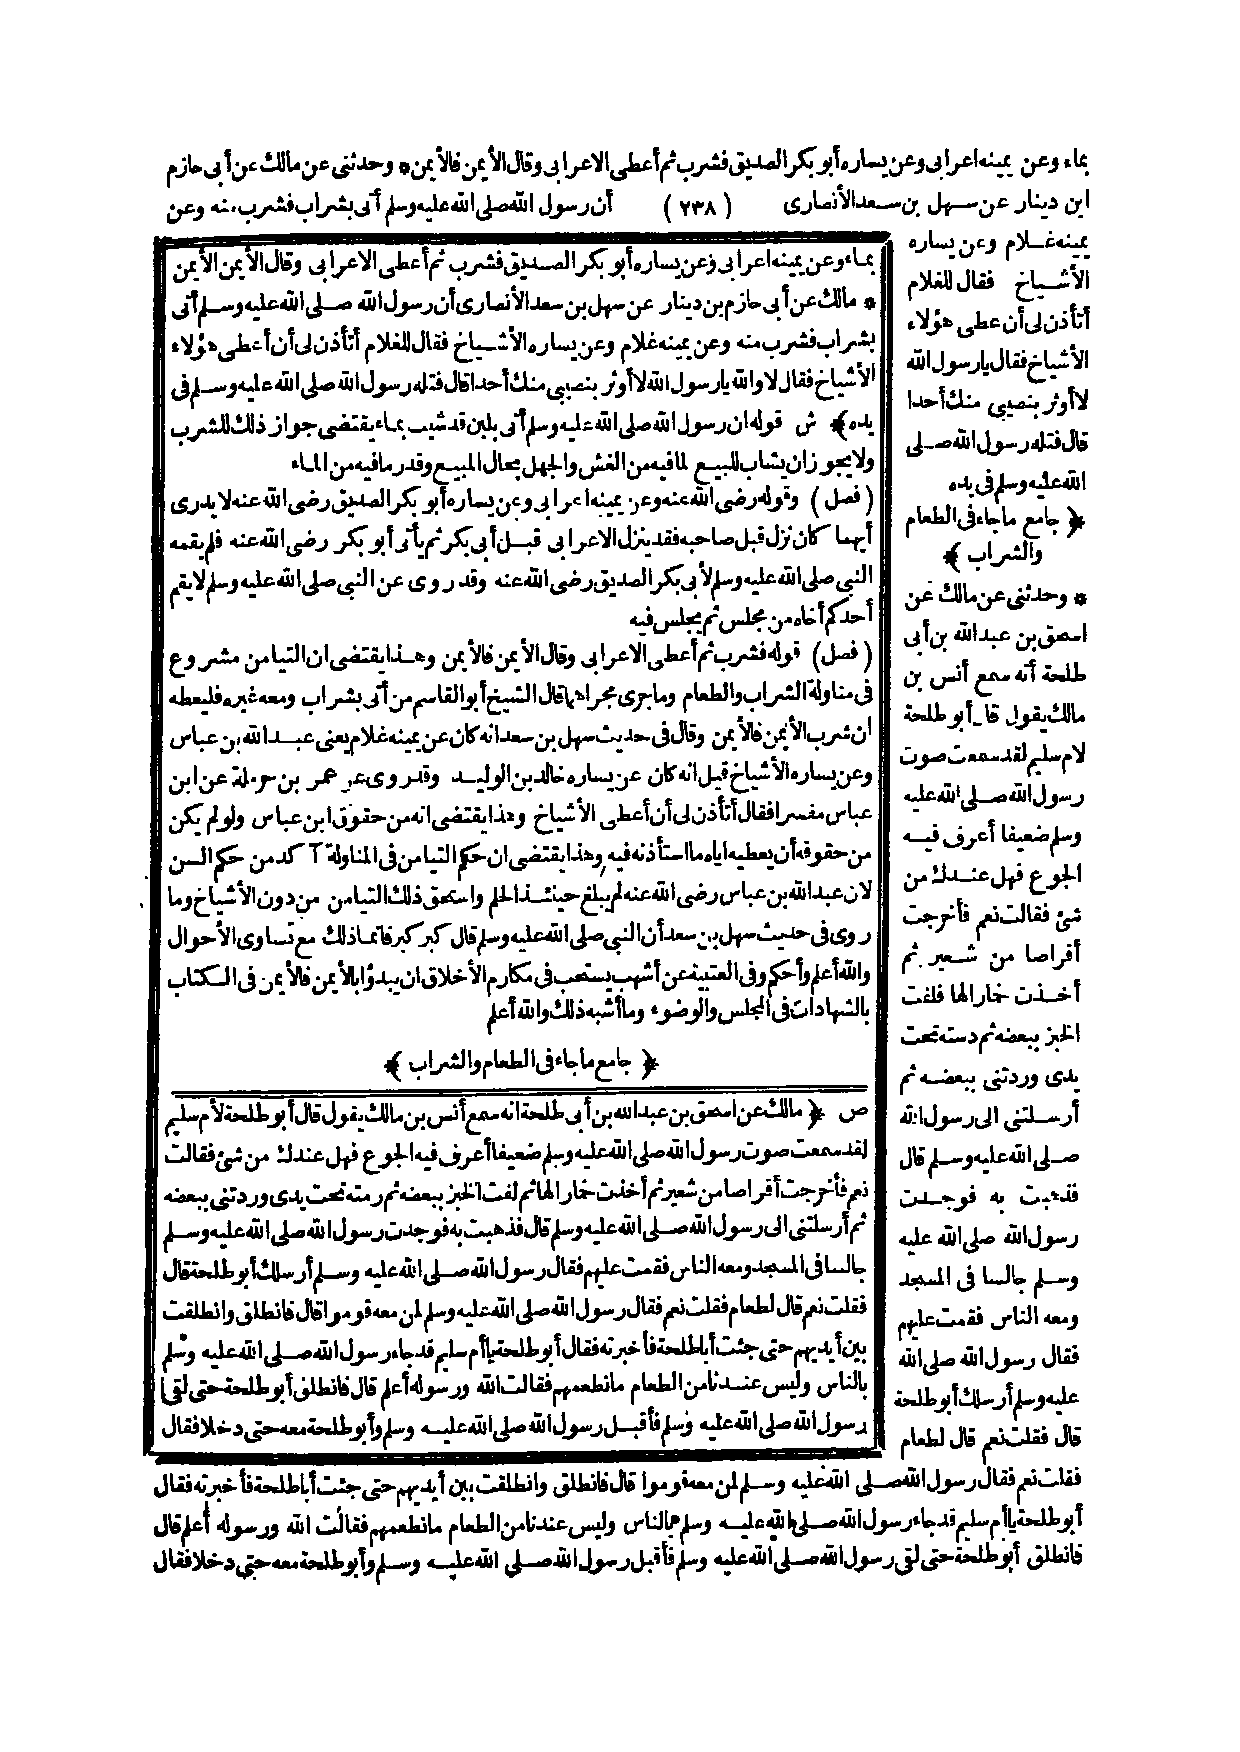 بماء وعن يمينه اعرابى وعن يساره أبو بكر الصديق فشرب ثم أعطى الاعرابى وقال الأيمن فالأيمن * وحدثنى عن مالك عن أبى حازم
ابن دينار عن سهل بن سعد الأنصارى (٢٣٨) أن رسول الله صلى الله عليه وسلم أتى بشراب فشرب منه وعن
يمينه غلام وعن يساره
الأشياخ فقال للغلام
أتأذن لى أن عطى هؤلاء
الأشياخ فقال يا رسول الله
لا أوثر بنصيبي منك أحدا
قال فتله رسول الله صلى
الله عليه وسلم فى يده
﴿ جامع ما جاء فى الطعام
والشراب ﴾
* وحدثنى عن مالك عن
اسحق بن عبد الله بن أبى
طلحة أنه سمع أنس بن
مالك يقول قال أبو طلحة
لام سليم لقد سمعت صوت
رسول الله صلى الله عليه
وسلم ضعيفا أعرف فيه
الجوع فهل عندك من
شئ فقالت نعم فأخرجت
أقراصا من شعير ثم
أخذت خمارا لها فلفت
الخبز ببعضه ثم دسته تحت
يدى وردتنى ببعضه ثم
أرسلتنى الى رسول الله
صلى الله عليه وسلم قال
فذهبت به فوجدت
رسول الله صلى الله عليه
وسلم جالسا فى المسجد
ومعه الناس فقمت عليهم
فقال رسول الله صلى الله
عليه وسلم أرسلك أبو طلحة
قال فقلت نعم قال لطعام
فقلت نعم فقال رسول الله صلى الله عليه وسلم لمن معه قوموا قال فانطلق وانطلقت بين أيديهم حتى جئت أبا طلحة فأخبرته فقال
أبو طلحة يا أم سليم قد جاء رسول الله صلى الله عليه وسلم بالناس وليس عندنا من الطعام ما نطعمهم فقالت الله ورسوله أعلم قال
فانطلق أبو طلحة حتى لقى رسول الله صلى الله عليه وسلم فأقبل رسول الله صلى الله عليه وسلم وأبو طلحة معه حتى دخلا فقال
بماء وعن يمينه اعرابى وعن يساره أبو بكر الصديق فشرب ثم أعطى الاعرابى وقال الأيمن الأيمن
* مالك عن أبى حازم بن دينار عن سهل بن سعد الأنصارى أن رسول الله صلى الله عليه وسلم أتى
بشراب فشرب منه وعن يمينه غلام وعن يساره الأشياخ فقال للغلام أتأذن لى أن أعطى هؤلاء
الأشياخ فقال لا والله يا رسول الله لا أوثر بنصيبي منك أحدا قال فتله رسول الله صلى الله عليه وسلم فى
يده ﴾ ش قوله ان رسول الله صلى الله عليه وسلم أتى بلبن قد شيب بماء يقتضى جواز ذلك للشرب
ولا يجوز ان يشاب للبيع لما فيه من الغش والجهل بحال المبيع وقدر ما فيه من الماء
(فصل) وقوله رضى الله عنه وعن يمينه اعرابى وعن يساره أبو بكر الصديق رضى الله عنه لا يدرى
أيهما كان نزل قبل صاحبه فقد ينزل الاعرابى قبل أبى بكر ثم يأتى أبو بكر رضى الله عنه فلم يقمه
النبي صلى الله عليه وسلم لأبى بكر الصديق رضى الله عنه وقد روى عن النبي صلى الله عليه وسلم لا يقم
أحدكم أخاه من مجلس ثم يجلس فيه
(فصل) قوله فشرب ثم أعطى الاعرابى وقال الأيمن فالأيمن وهذا يقتضى ان التيامن مشروع
فى مناولة الشراب والطعام وما جرى مجراهما قال الشيخ أبو القاسم من أتى بشراب ومعه غيره فليعطه
ان شرب الأيمن فالأيمن وقال فى حديث سهل بن سعد انه كان عن يمينه غلام يعنى عبد الله بن عباس
وعن يساره الأشياخ قيل انه كان عن يساره خالد بن الوليد وقد روى عن عمر بن حرملة عن ابن
عباس مفسرا فقال أتأذن لى أن أعطى الأشياخ وهذا يقتضى انه من حقوق ابن عباس ولو لم يكن
من حقوقه أن يعطيه اياه ما استأذنه فيه وهذا يقتضى ان حكم التيامن فى المناولة آكد من حكم السن
لان عبد الله بن عباس رضى الله عنه لم يبلغ حينئذ الحلم واستحق ذلك التيامن من دون الأشياخ وما
روى فى حديث سهل بن سعد أن النبي صلى الله عليه وسلم قال كبر كبر فانما ذلك مع تساوى الأحوال
والله أعلم وأحكم وفى العتبية عن أشهب يستحب فى مكارم الأخلاق ان يبدؤا بالأيمن فالأيمن فى الكتاب
بالشهادات فى المجلس والوضوء وما أشبه ذلك والله أعلم
﴿ جامع ما جاء فى الطعام والشراب ﴾
ص ﴿ مالك عن اسحق بن عبد الله بن أبى طلحة انه سمع أنس بن مالك يقول قال أبو طلحة لأم سليم
لقد سمعت صوت رسول الله صلى الله عليه وسلم ضعيفا أعرف فيه الجوع فهل عندك من شئ فقالت
نعم فأخرجت أقراصا من شعير ثم أخذت خمارا لها ثم لفت الخبز ببعضه ثم رمته تحت يدى وردتنى ببعضه
ثم أرسلتنى الى رسول الله صلى الله عليه وسلم قال فذهبت به فوجدت رسول الله صلى الله عليه وسلم
جالسا فى المسجد ومعه الناس فقمت عليهم فقال رسول الله صلى الله عليه وسلم أرسلك أبو طلحة قال
فقلت نعم قال لطعام فقلت نعم فقال رسول الله صلى الله عليه وسلم لمن معه قوموا قال فانطلق وانطلقت
بين أيديهم حتى جئت أبا طلحة فأخبرته فقال أبو طلحة يا أم سليم قد جاء رسول الله صلى الله عليه وسلم
بالناس وليس عندنا من الطعام ما نطعمهم فقالت الله ورسوله أعلم قال فانطلق أبو طلحة حتى لقى
رسول الله صلى الله عليه وسلم فأقبل رسول الله صلى الله عليه وسلم وأبو طلحة معه حتى دخلا فقال